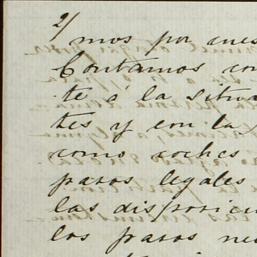 2/
mos por cues
Contamos con
te á la situa
tes y con la
como coches
pasos legales
las disposicio
los pasos ne